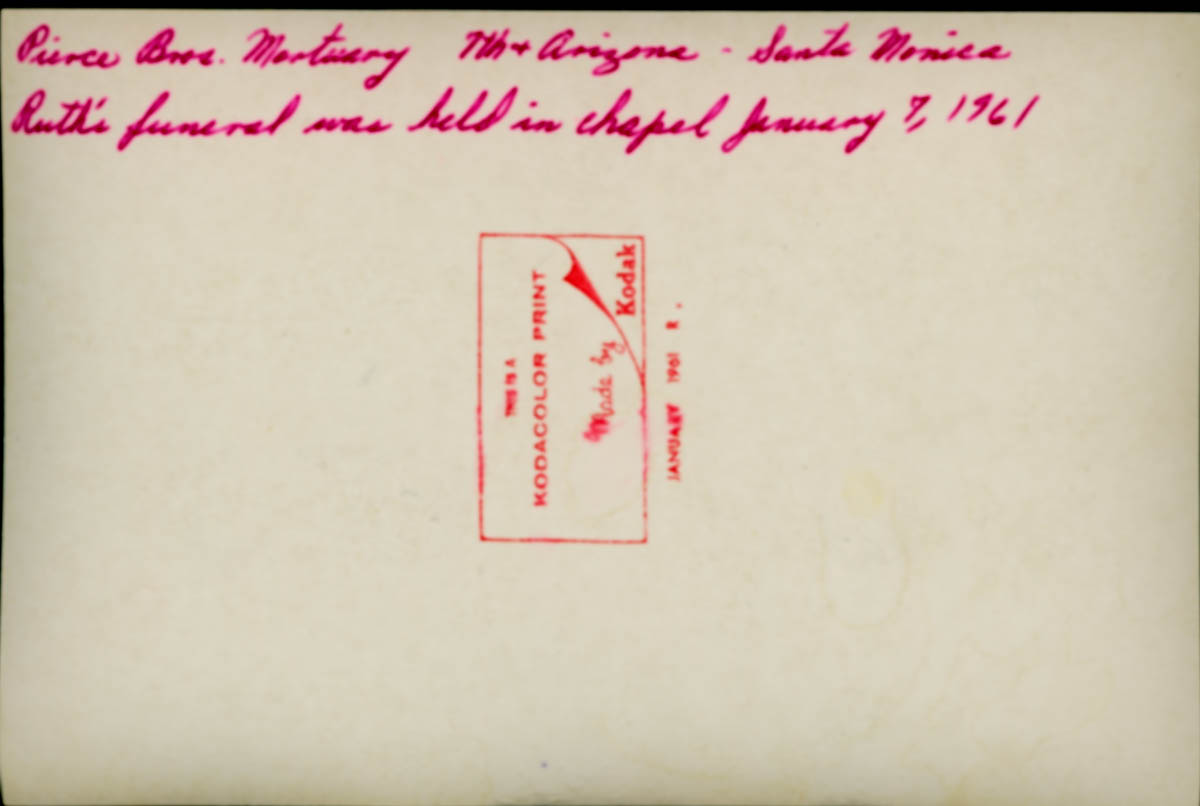 Pierce Bros. Mortuary 7th & Arizona - Santa Monica
Ruth's funeral was held in chapel January 7, 1961
THIS IS A
KODACOLOR PRINT
Made by
Kodak
JANUARY 1961 R.